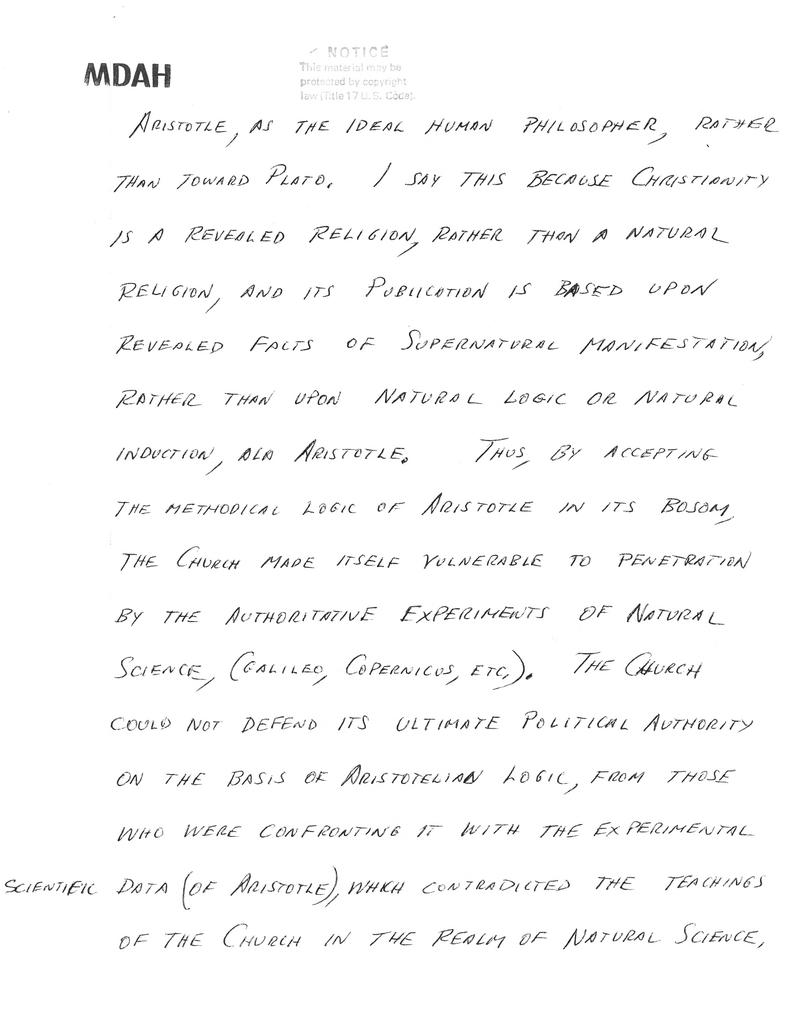 MDAH
NOTICE
This material may be
protected by copyright
law (Title 17 U.S. Code).
ARISTOTLE, AS THE IDEAL HUMAN PHILOSOPHER, RATHER
THAN TOWARD PLATO. I SAY THIS BECAUSE CHRISTIANITY
IS A REVEALED RELIGION, RATHER THAN A NATURAL
RELIGION, AND ITS PUBLICATION IS BASED UPON
REVEALED FACTS OF SUPERNATURAL MANIFESTATION,
RATHER THAN UPON NATURAL LOGIC OR NATURAL
INDUCTION, ALA ARISTOTLE. THUS, BY ACCEPTING
THE METHODICAL LOGIC OF ARISTOTLE IN ITS BOSOM,
THE CHURCH MADE ITSELF VULNERABLE TO PENETRATION
BY THE AUTHORITATIVE EXPERIMENTS OF NATURAL
SCIENCE, (GALILEO, COPERNICUS, ETC,). THE CHURCH
COULD NOT DEFEND ITS ULTIMATE POLITICAL AUTHORITY
ON THE BASIS OF ARISTOTELIAN LOGIC, FROM THOSE
WHO WERE CONFRONTING IT WITH THE EXPERIMENTAL
SCIENTIFIC DATA (OF ARISTOTLE), WHICH CONTRADICTED THE TEACHINGS
OF THE CHURCH IN THE REALM OF NATURAL SCIENCE,